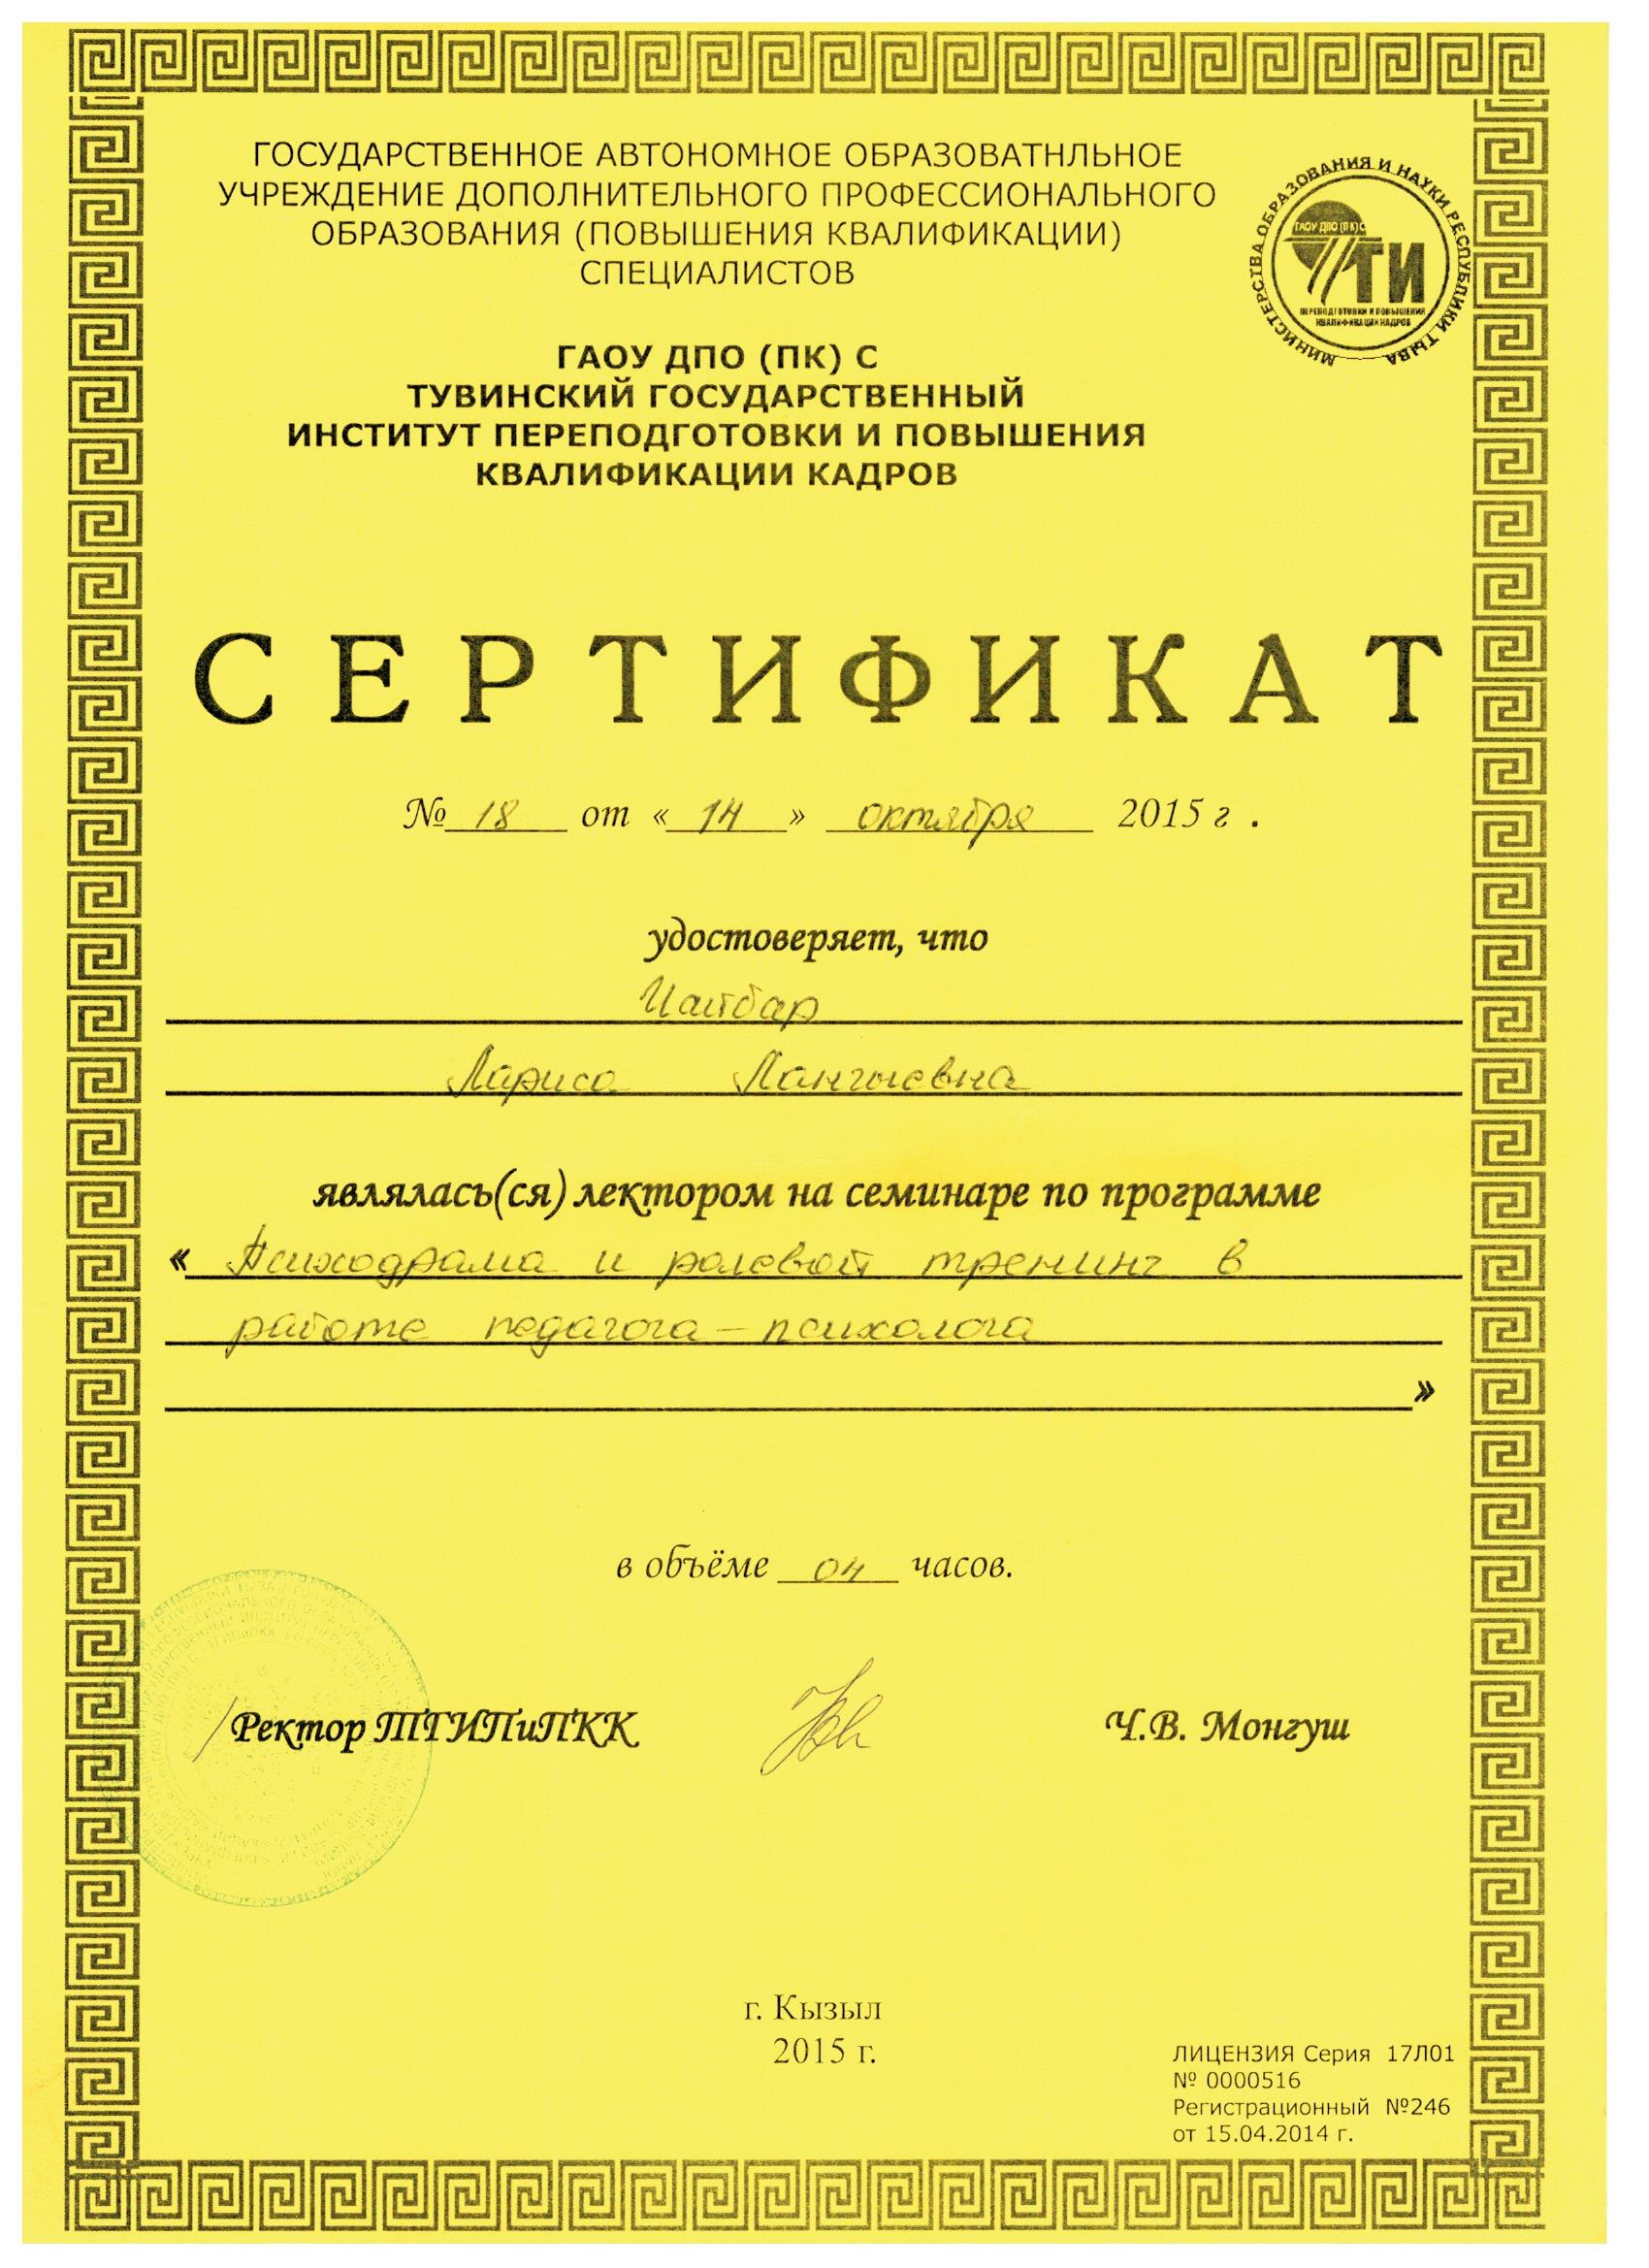 ГОСУДАРСТВЕННОЕ АВТОНОМНОЕ ОБРАЗОВАТНЛЬНОЕ
УЧРЕЖДЕНИЕ ДОПОЛНИТЕЛЬНОГО ПРОФЕССИОНАЛЬНОГО
ОБРАЗОВАНИЯ (ПОВЫШЕНИЯ КВАЛИФИКАЦИИ)
СПЕЦИАЛИСТОВ
МИНИСТЕРСТВА ОБРАЗОВАНИЯ И НАУКИ РЕСПУБЛИКИ ТЫВА
ГАОУ ДПО (ПК) С
ТИ
ПЕРЕПОДГОТОВКИ И ПОВЫШЕНИЯ
КВАЛИФИКАЦИИ КАДРОВ
ГАОУ ДПО (ПК) С
ТУВИНСКИЙ ГОСУДАРСТВЕННЫЙ
ИНСТИТУТ ПЕРЕПОДГОТОВКИ И ПОВЫШЕНИЯ
КВАЛИФИКАЦИИ КАДРОВ
СЕРТИФИКАТ
№ 18 от « 14 » октября 2015 г .
удостоверяет, что
Лариса
являлась(ся) лектором на семинаре по программе
« Психодрама и ролевой тренинг в
работе педагога - психолога
»
в объёме 04 часов.
Ректор ТГИПиПКК Ч.В. Монгуш
г. Кызыл
2015 г.
ЛИЦЕНЗИЯ Серия 17Л01
№ 0000516
Регистрационный №246
от 15.04.2014 г.